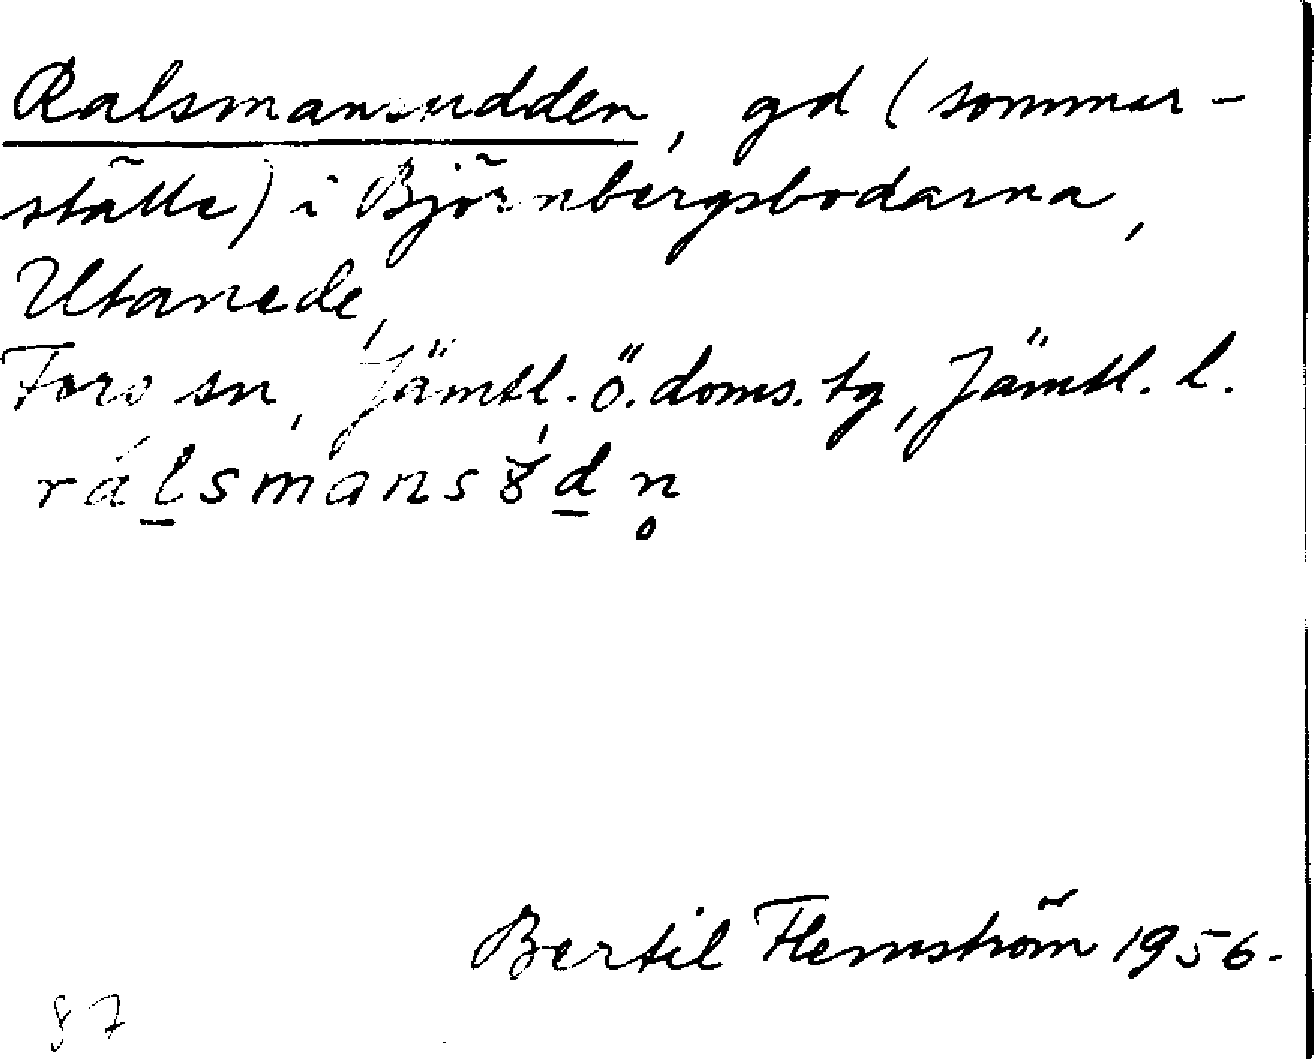 Ralsmansudden, gd (sommar-
ställe) i Björnbergsbodarna,
Utanede,
Fors sn, Jämtl. ö. doms. tg, Jämtl. l.
rálsmans dn̥
Bertil Flemström 1956.
87